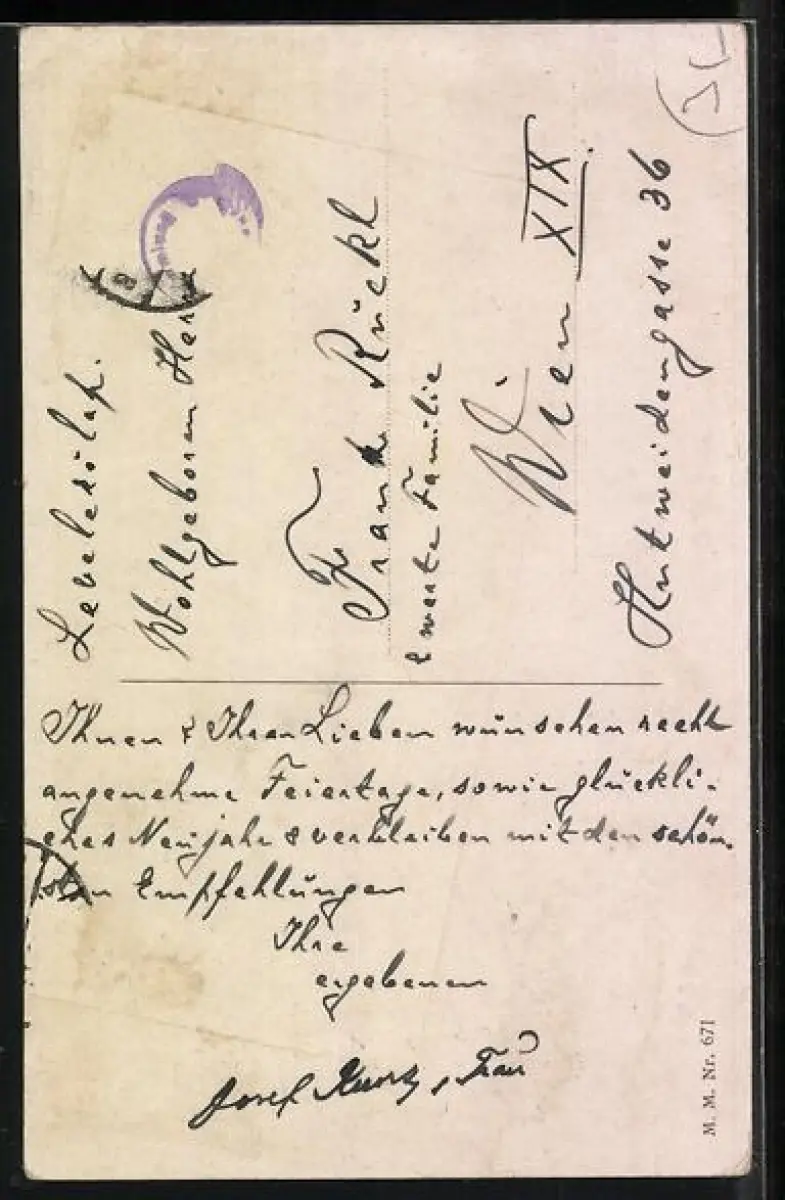 Levelezölap.
Wohlgeboren Herrn
Frank Rückl
& werte Familie
Wien XIX.
Hutweidengasse 36
Ihnen & Ihren Lieben wünschen recht
angenehme Feiertage, sowie glückli-
ches Neujahr & verbleiben mit den schön-
sten Empfehlungen
Ihre
ergebenen
Josef , Frau
M. M. Nr. 671